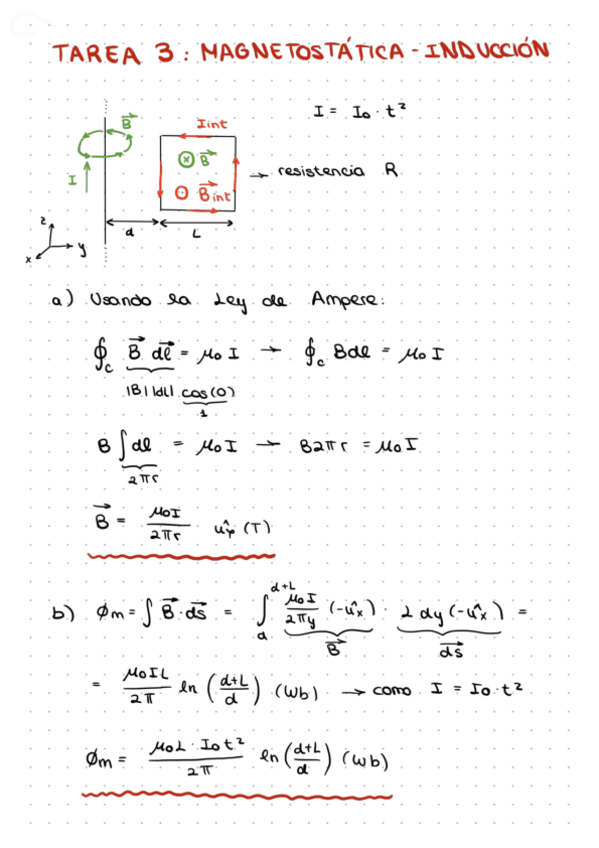 TAREA 3: MAGNETOSTÁTICA - INDUCCIÓN
I = I₀ · t²
B⃗
Iint
⊗ B⃗
I
⊙ B⃗int
→ resistencia R
z
y
x
d
L
a) Usando la Ley de Ampere:
∮c B⃗ dl⃗ = μ₀ I → ∮c Bdl = μ₀ I
|B| |dl| cos(0)
1
B ∫ dl = μ₀ I → B2πr = μ₀ I
2πr
B⃗ = μ₀I / 2πr ûφ (T)
b) Øm = ∫ B⃗ · ds⃗ = ∫_d^{d+L} μ₀I / 2πy (-ûx) · 2 dy (-ûx) =
B⃗ ds⃗
= μ₀IL / 2π ln (d+L / d) (Wb) → como I = I₀·t²
Øm = μ₀L · I₀t² / 2π ln (d+L / d) (Wb)